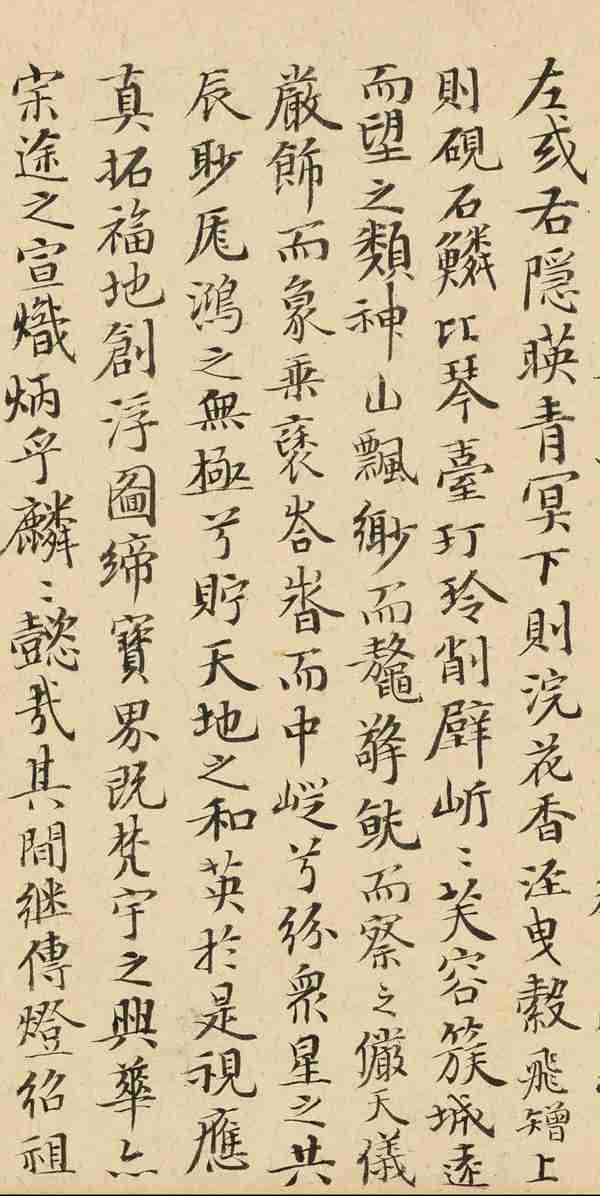 左或右隱暎青冥下則浣花香洷曳縠飛矰上
則硯石鱗比琴臺玎玲削壁嶄〻芙容簇城遠
而望之類神山飄緲而鼇擎就而察之儼天儀
嚴飾而象乘褒峉嵾而中嵷兮紛衆星之共
辰眇厖鴻之無極兮貯天地之和英於是祝應
真拓福地創浮圖締寶界既梵宇之興華亦
宗途之宣熾炳乎麟〻懿哉其間繼傳燈紹祖